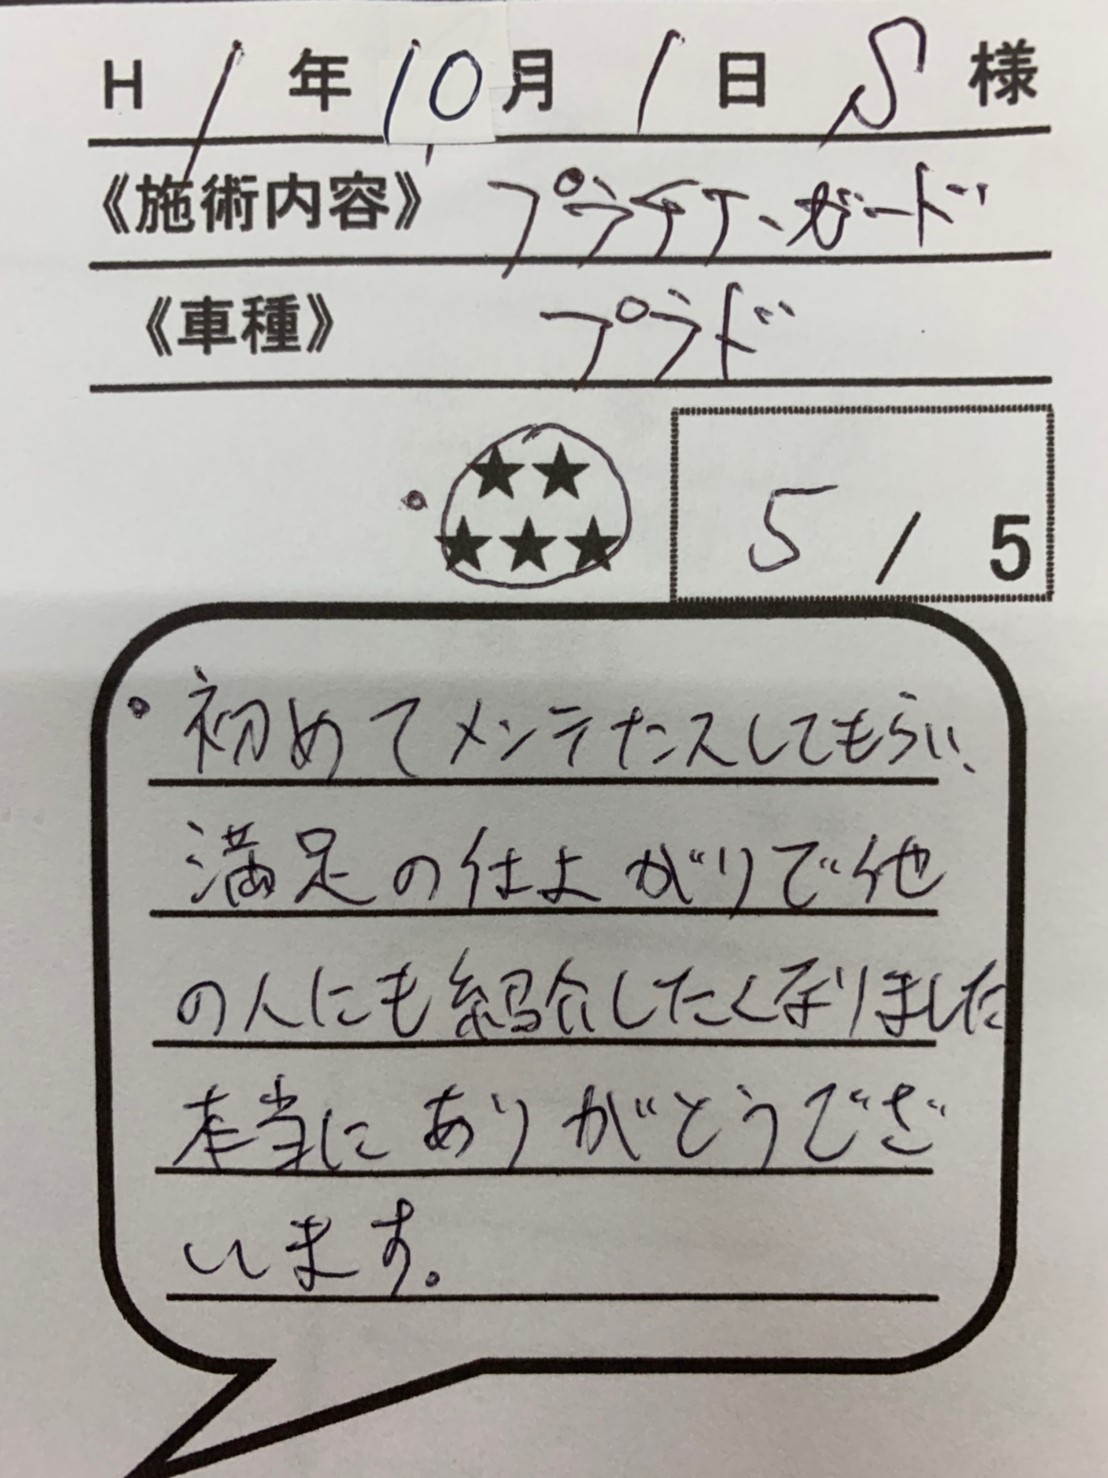 H 1 年 10 月 1 日 S 様
《施術内容》 プラチナ、ガード
《車種》 プラド
★★
★★★
5 / 5
・初めてメンテナンスしてもらい、
満足の仕上がりで他
の人にも紹介したくなりました
本当にありがとうござ
います。